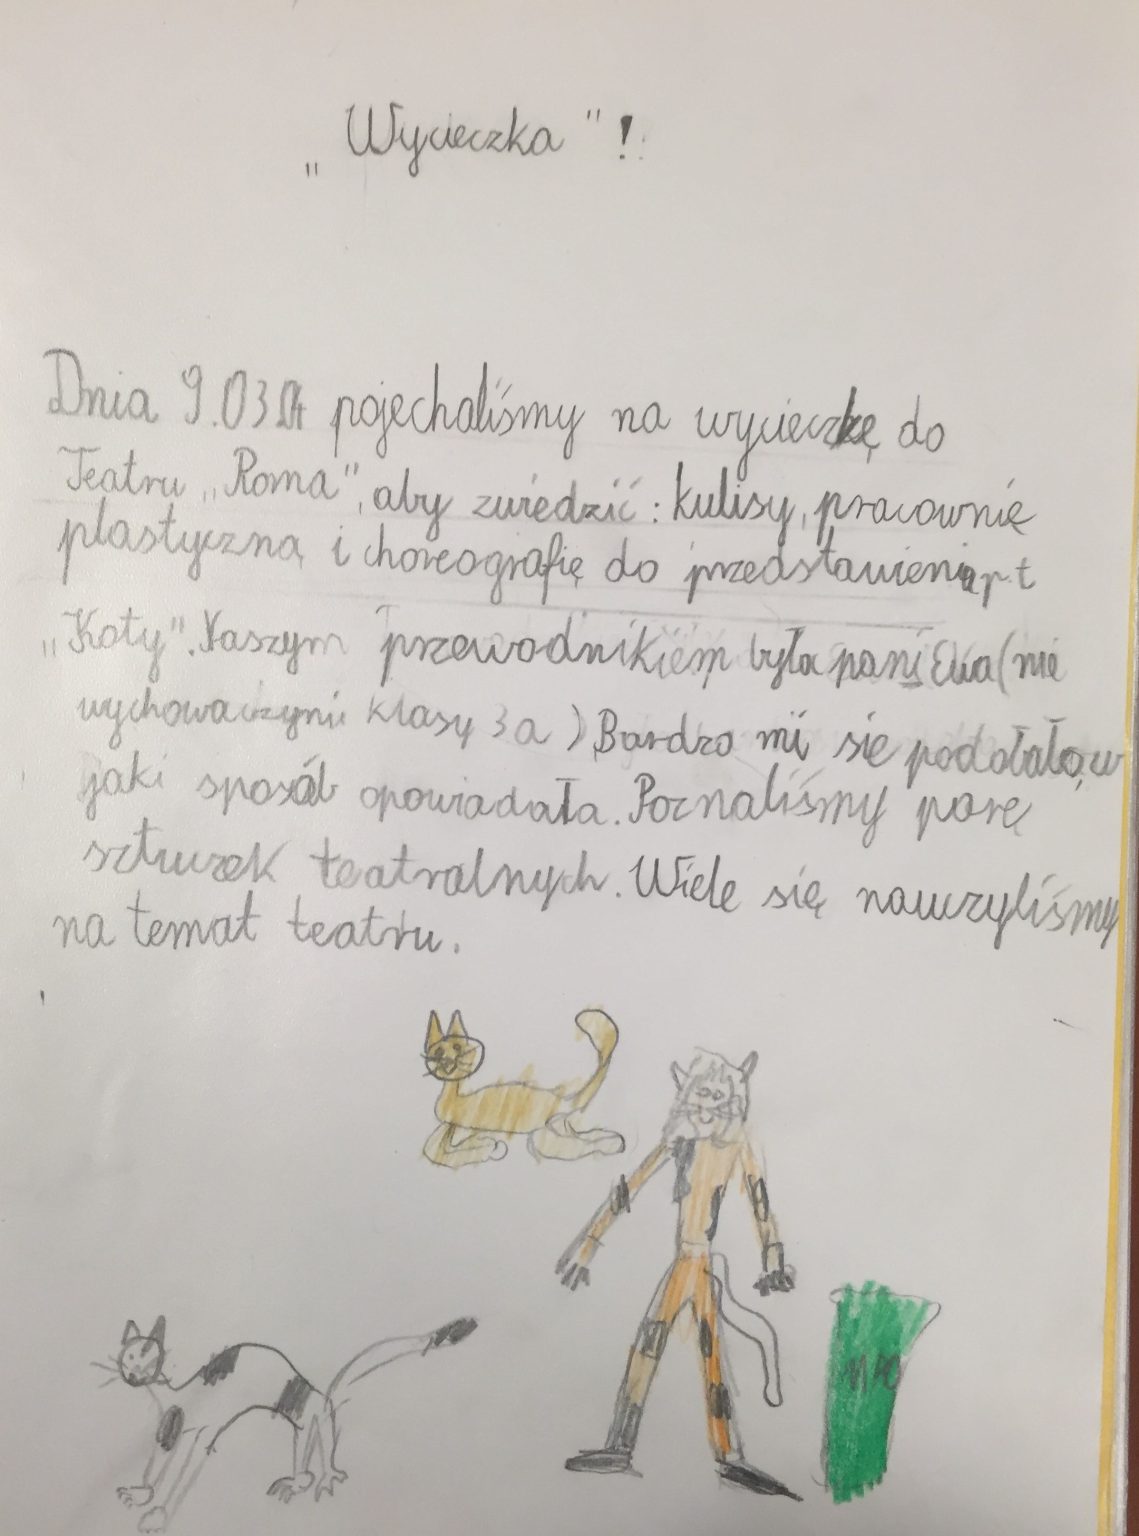 „Wycieczka"!
Dnia 9.03.04 pojechaliśmy na wycieczkę do
Teatru „Roma", aby zwiedzić: kulisy, pracownię
plastyczną i choreografię do przedstawienia p.t
„Koty". Naszym przewodnikiem była pani Ewa (nie
wychowawczyni klasy 3a). Bardzo mi się podobało, w
jaki sposób opowiadała. Poznaliśmy parę
sztuczek teatralnych. Wiele się nauczyliśmy
na temat teatru.